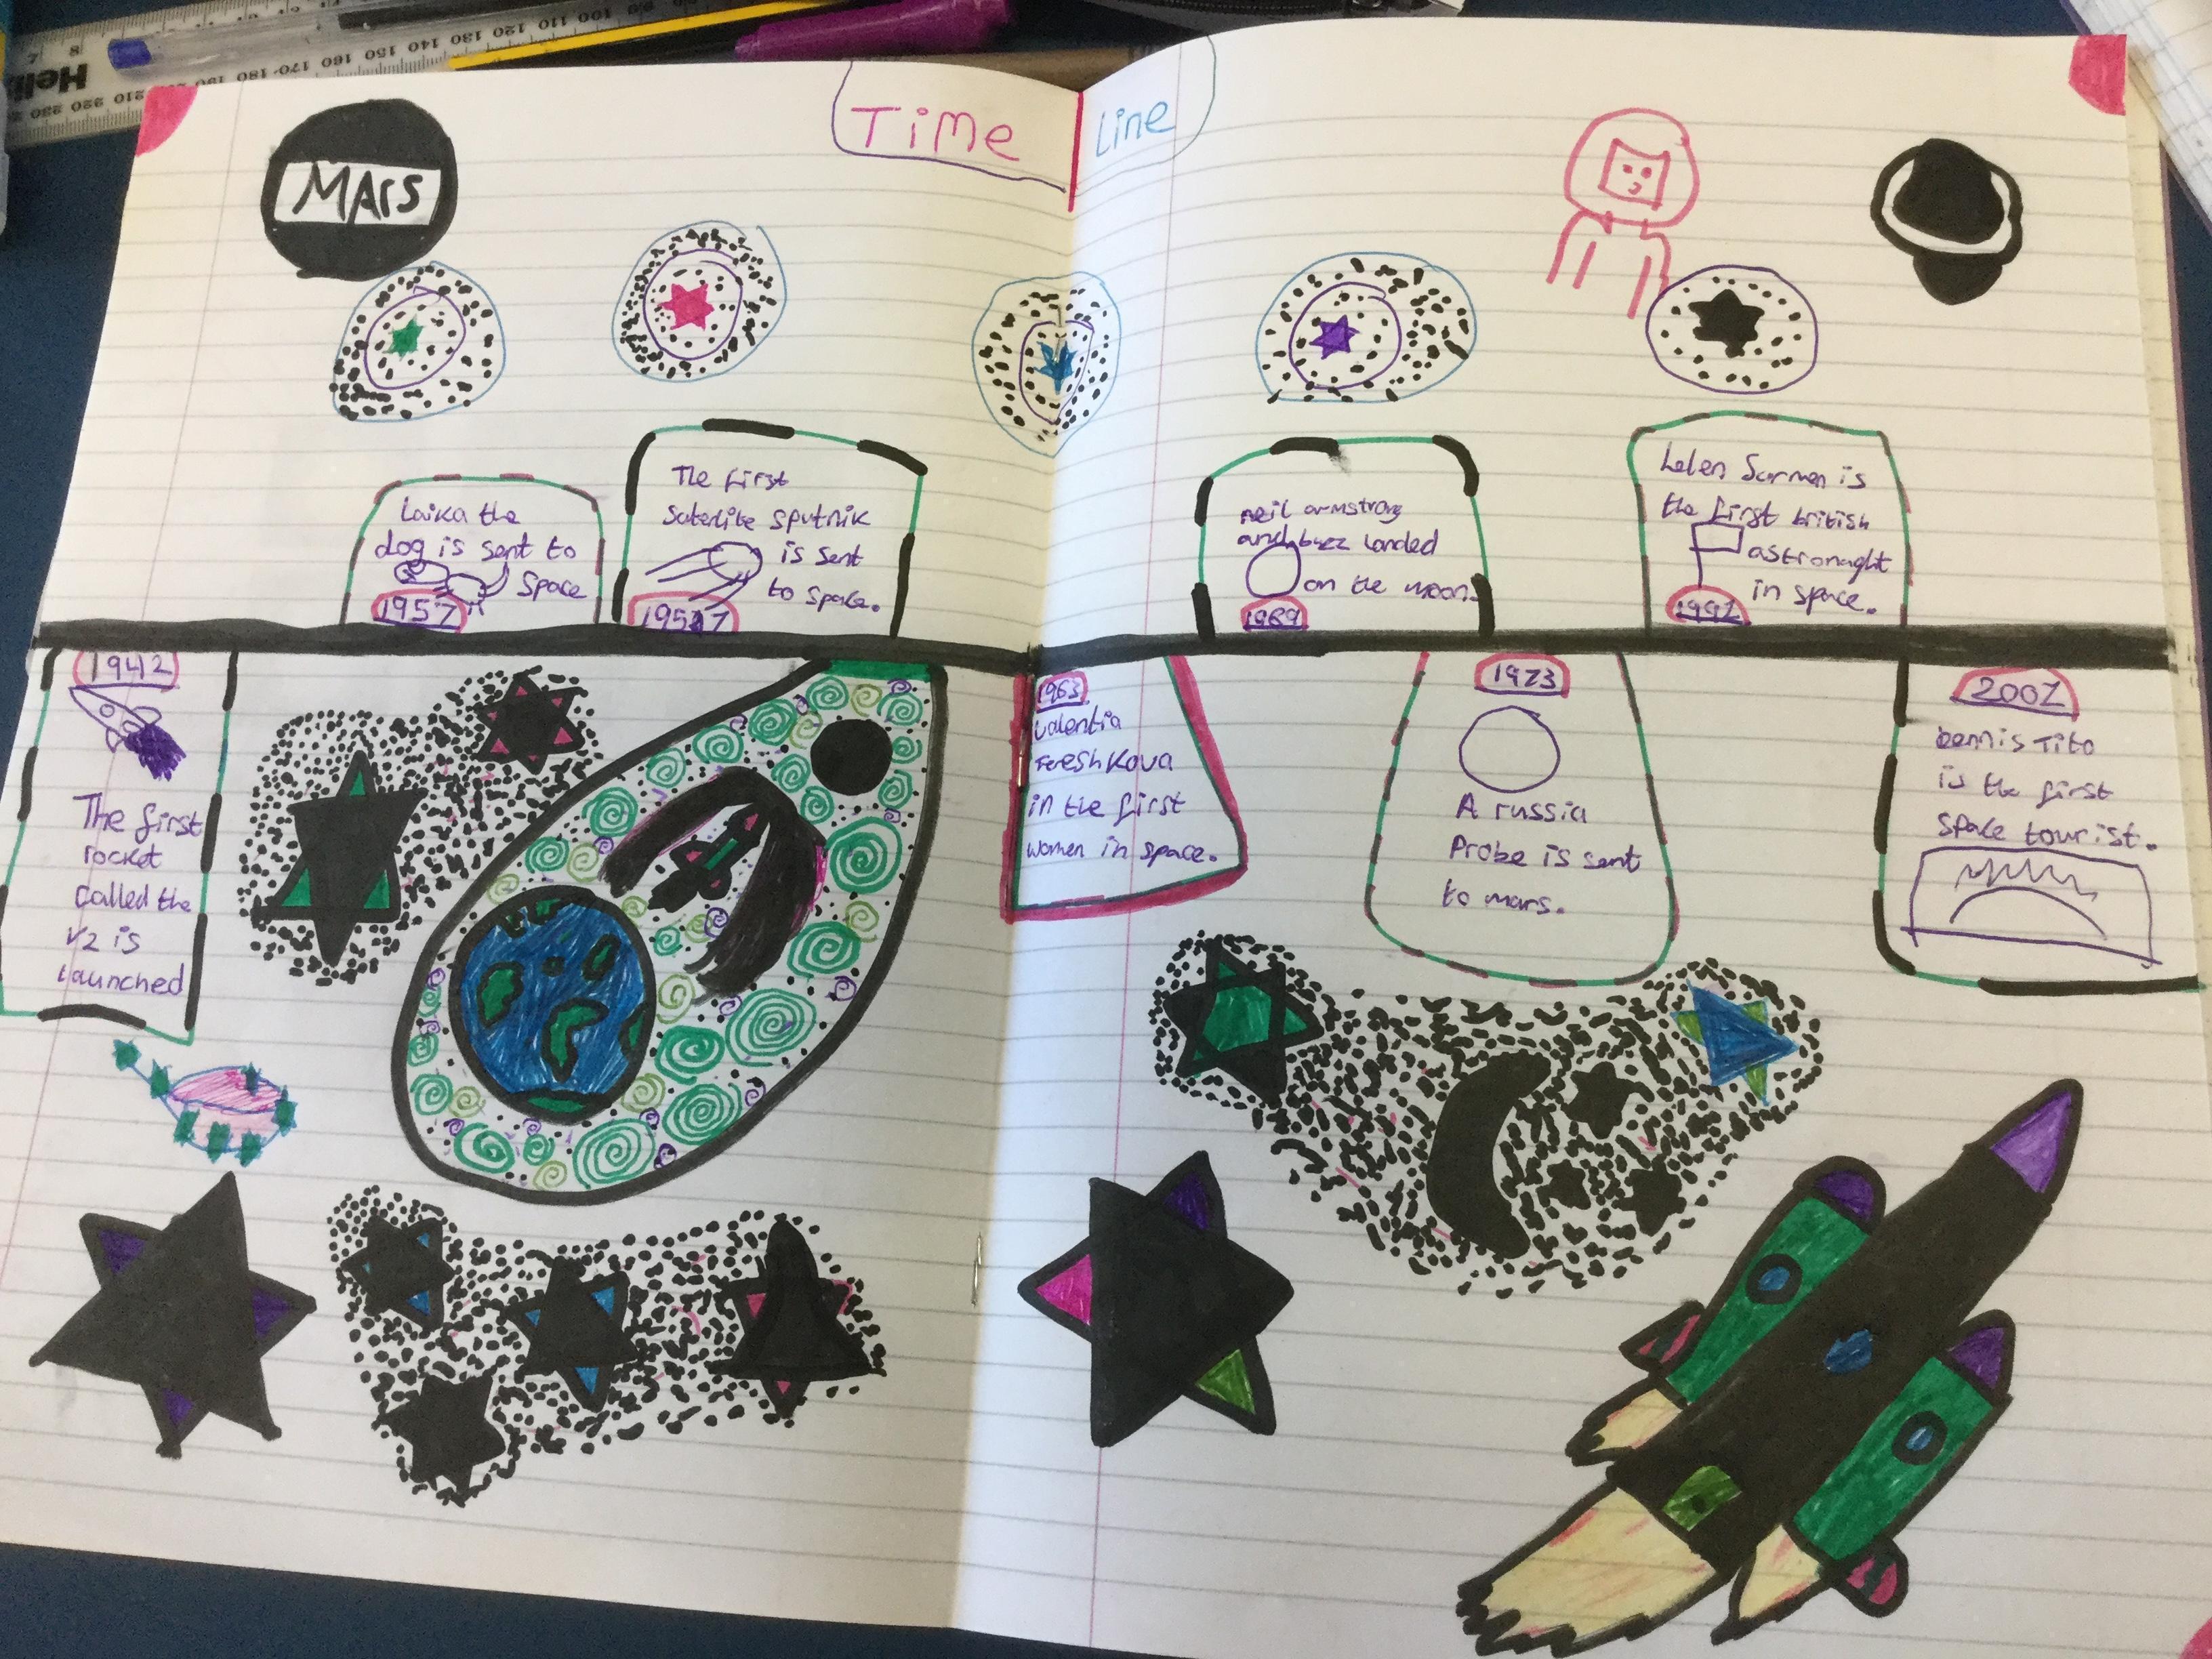 Time Line
MArs
Laika the
dog is sent to
space
1957
The first
Saterlite sputnik
is sent
to space.
1957
neil armstrong
and buzz landed
on the moon.
1969
helen Sarmen is
the first british
astronaught
in space.
1991
1942
The first
rocket
called the
V2 is
launched
1963
Valentia
Tereshkova
in the first
women in space.
1973
A russia
Probe is sent
to mars.
2001
Dennis Tito
is the first
space tourist.
7 8
Hel
230 220 210 190 180 170 160 150 140 130 120 110 100 90 80